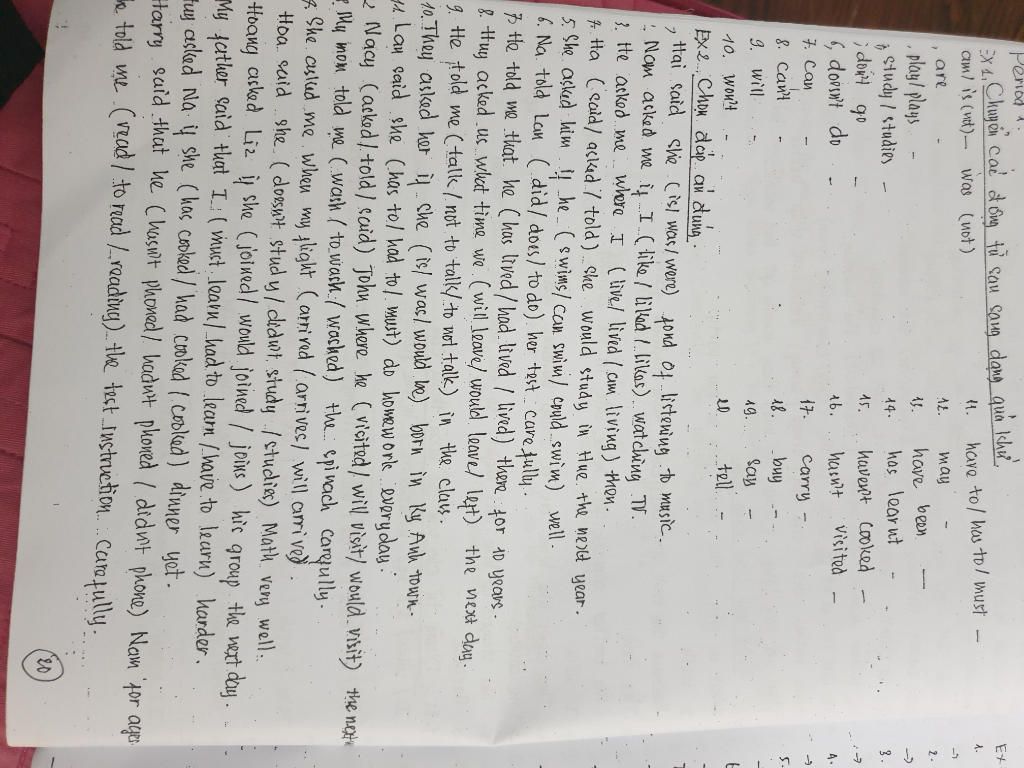 Period 1.
Ex 1. Chuyển các động từ sau sang dạng quá khứ
am/ is (not) - was (not)
are -
play/plays -
study/studies -
don't go -
6, doesn't do -
7. can -
8. can't -
9. will -
10. won't -
11. have to/has to/ must -
12. may -
13. have been -
14. has learnt -
15. haven't cooked -
16. hasn't visited -
17. carry -
18. buy -
19. say -
20 tell -
Ex 2. Chọn đáp án đúng.
, Hai said she (is/was/were) fond of listening to music.
. Nam asked me if I (like/liked/likes) watching TV.
3. He asked me where I (live/lived/am living) then.
4. Ha (said/asked/told) she would study in the next year.
5. She asked him if he (swims/can swim/could swim) well.
6. Na told Lan (did/does/to do) her test carefully.
7. He told me that he (has lived/had lived/lived) there for 10 years.
8. Huy asked us what time we (will leave/would leave/left) the next day.
9. He told me (talk/not to talk/to not talk) in the class.
10. They asked her if she (is/was/would be) born in Ky Anh town.
11. Lan said she (has to/had to/must) do homework everyday.
2 Nacy (asked/told/said) john where he (visited/will visit/would visit) the next
My mom told me (wash/to wash/washed) the spinach carefully.
She asked me when my flight (arrived/arrives/will arrived).
Hoa said she (doesn't study/didn't study/studies) Math very well.
Hoang asked Liz if she (joined/would joined/joins) his group the next day.
My father said that I (must learn/had to learn/have to learn) harder.
asked Na if she (has cooked/had cooked/cooked) dinner yet.
Harry said that he (hasn't phoned/hadn't phoned/didn't phone) Nam for
told me (read/to read/reading) the test instruction carefully.
20
Ex
1.
2.
3.
4.
5.